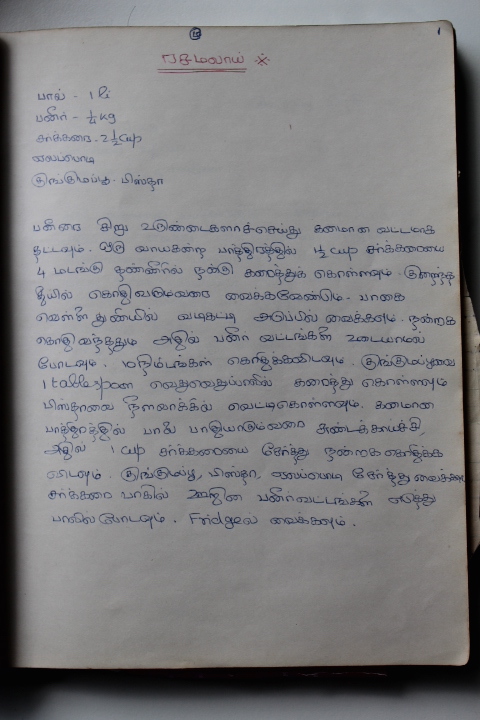 15
1
ரசமலாய் *
பால் - 1 லி
பனீர் - ¼ kg
சர்க்கரை - 2½ cup
ஏலப்பொடி
குங்குமப்பூ - பிஸ்தா
பனீரை சிறு உருண்டைகளாகச்செய்து கனமான வட்டமாக
தட்டவும். ஒரு வாயகன்ற பாத்திரத்தில் 1½ cup சர்க்கரையை
4 மடங்கு தண்ணீரில் நன்கு கரைத்துக் கொள்ளவும். குறைந்த
தீயில் கொதிவரும்வரை வைக்கவேண்டும். பாகை
வெள்ளை துணியில் வடிகட்டி அடுப்பில் வைக்கவும். நன்றாக
கொதிவந்ததும் அதில் பனீர் வட்டங்கள் உடையாமல்
போடவும். 10 நிமிடங்கள் கொதிக்கவிடவும். குங்குமப்பூவை
1 tablespoon வெதுவெதுப்பாலில் கரைத்து கொள்ளவும்
பிஸ்தாவை நீளவாக்கில் வெட்டிகொள்ளவும். கனமான
பாத்திரத்தில் பால் பாதியாகும்வரை சுண்டக்காய்ச்சி,
அதில் 1 cup சர்க்கரையை சேர்த்து நன்றாக கொதிக்க
விடவும். குங்குமப்பூ, பிஸ்தா, ஏலப்பொடி சேர்த்து வைக்கவும்
சர்க்கரை பாகில் ஊறின பனீர்வட்டங்கள் எடுத்து
பாலில் போடவும். Fridgeல் வைக்கவும்.